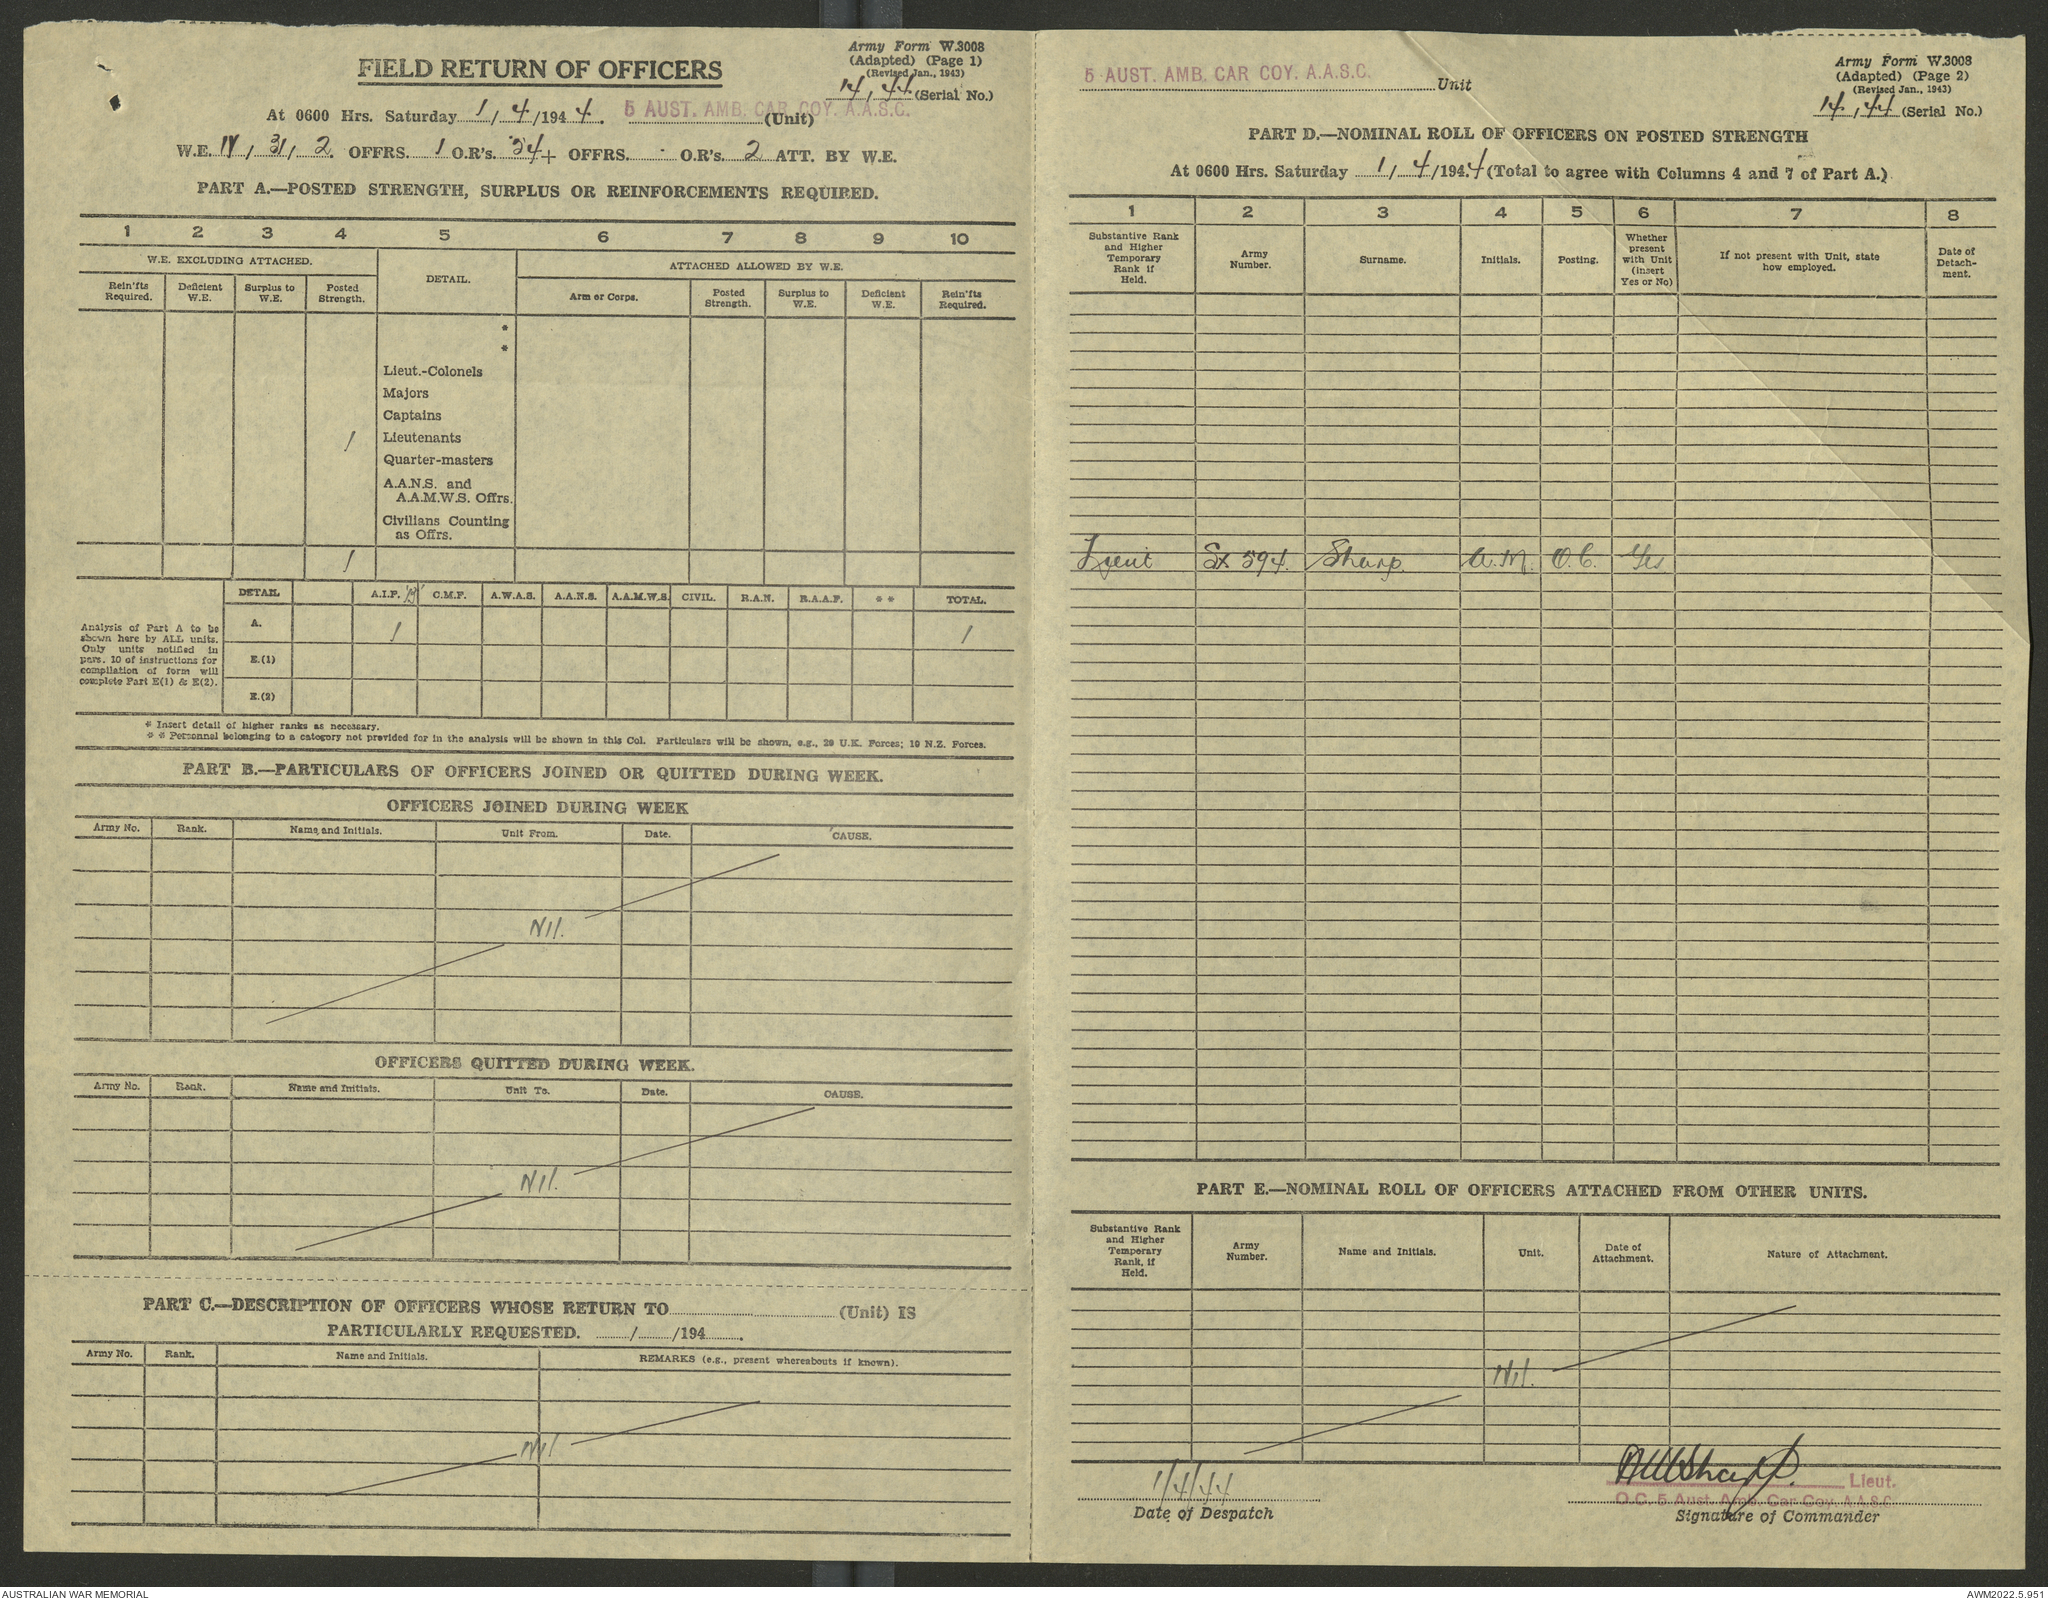 Army Form W.3008
(Adapted) (Page 1)
(Revised Jan., 1943)
14, 44 (Serial No.)
FIELD RETURN OF OFFICERS
At 0600 Hrs. Saturday 1/4/1944. 5 AUST. AMB. CAR COY. A.A.S.C. (Unit)
W.E. IV, 31, 2. OFFRS. 1 O.R's. 34 + OFFRS. - O.R's. 2 ATT. BY W.E.
PART A.—POSTED STRENGTH, SURPLUS OR REINFORCEMENTS REQUIRED.
1 2 3 4 5 6 7 8 9 10
W.E. EXCLUDING ATTACHED. DETAIL. ATTACHED ALLOWED BY W.E.
Rein'fts Required. Deficient W.E. Surplus to W.E. Posted Strength. Arm or Corps. Posted Strength. Surplus to W.E. Deficient W.E. Rein'fts Required.
*
*
Lieut.-Colonels
Majors
Captains
1 Lieutenants
Quarter-masters
A.A.N.S. and
A.A.M.W.S. Offrs.
Civilians Counting
as Offrs.
1
DETAIL A.I.F. C.M.F. A.W.A.S. A.A.N.S. A.A.M.W.S. CIVIL. R.A.N. R.A.A.F. * * TOTAL.
Analysis of Part A to be
shown here by ALL units.
Only units notified in
para. 10 of instructions for
compilation of form will
complete Part E(1) & E(2).
A. 1 1
E.(1)
E.(2)
* Insert detail of higher ranks as necessary.
* * Personnel belonging to a category not provided for in the analysis will be shown in this Col. Particulars will be shown, e.g., 29 U.K. Forces; 10 N.Z. Forces.
PART B.—PARTICULARS OF OFFICERS JOINED OR QUITTED DURING WEEK.
OFFICERS JOINED DURING WEEK
Army No. Rank. Name and Initials. Unit From. Date. CAUSE.
Nil.
OFFICERS QUITTED DURING WEEK.
Army No. Rank. Name and Initials. Unit To. Date. CAUSE.
Nil.
PART C.—DESCRIPTION OF OFFICERS WHOSE RETURN TO (Unit) IS
PARTICULARLY REQUESTED. / /194 .
Army No. Rank. Name and Initials. REMARKS (e.g., present whereabouts if known).
Nil
5 AUST. AMB. CAR COY. A.A.S.C. Unit
Army Form W.3008
(Adapted) (Page 2)
(Revised Jan., 1943)
14, 44 (Serial No.)
PART D.—NOMINAL ROLL OF OFFICERS ON POSTED STRENGTH
At 0600 Hrs. Saturday 1/4/1944 (Total to agree with Columns 4 and 7 of Part A.)
1 2 3 4 5 6 7 8
Substantive Rank and Higher Temporary Rank if Held. Army Number. Surname. Initials. Posting. Whether present with Unit (insert Yes or No) If not present with Unit, state how employed. Date of Detach-ment.
Lieut SX 594. Sharp. A.M. O.C. Yes
PART E.—NOMINAL ROLL OF OFFICERS ATTACHED FROM OTHER UNITS.
Substantive Rank and Higher Temporary Rank, if Held. Army Number. Name and Initials. Unit. Date of Attachment. Nature of Attachment.
Nil.
1/4/44
Date of Despatch
AMSharp. Lieut.
O.C. 5 Aust. Amb. Car Coy. A.A.S.C.
Signature of Commander
AUSTRALIAN WAR MEMORIAL
AWM2022.5.951